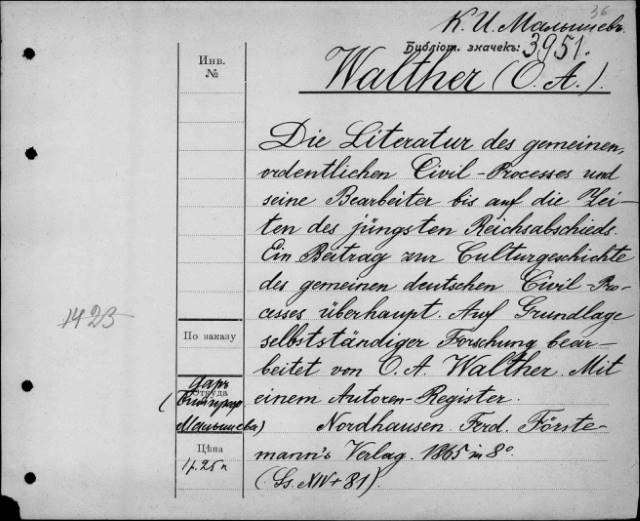 36
К. И. Малышевъ.
Библіот. значекъ: 3951.
Walther (O. A.).
Инв.
№
Die Literatur des gemeinen,
ordentlichen Civil-Processes und
seine Bearbeiter bis auf die Zei-
ten des jüngsten Reichsabschieds.
Ein Beitrag zur Culturgeschichte
des gemeinen deutschen Civil-Pro-
cesses überhaupt. Auf Grundlage
selbstständiger Forschung bear-
beitet von O. A. Walther. Mit
einem Autoren-Register.
Nordhausen. Ferd. Förste-
mann's Verlag. 1865 in 8°.
(Ss. XIV + 81).
1423
По заказу
даръ
Откуда
Малышева)
Цѣна
1 р. 25 к